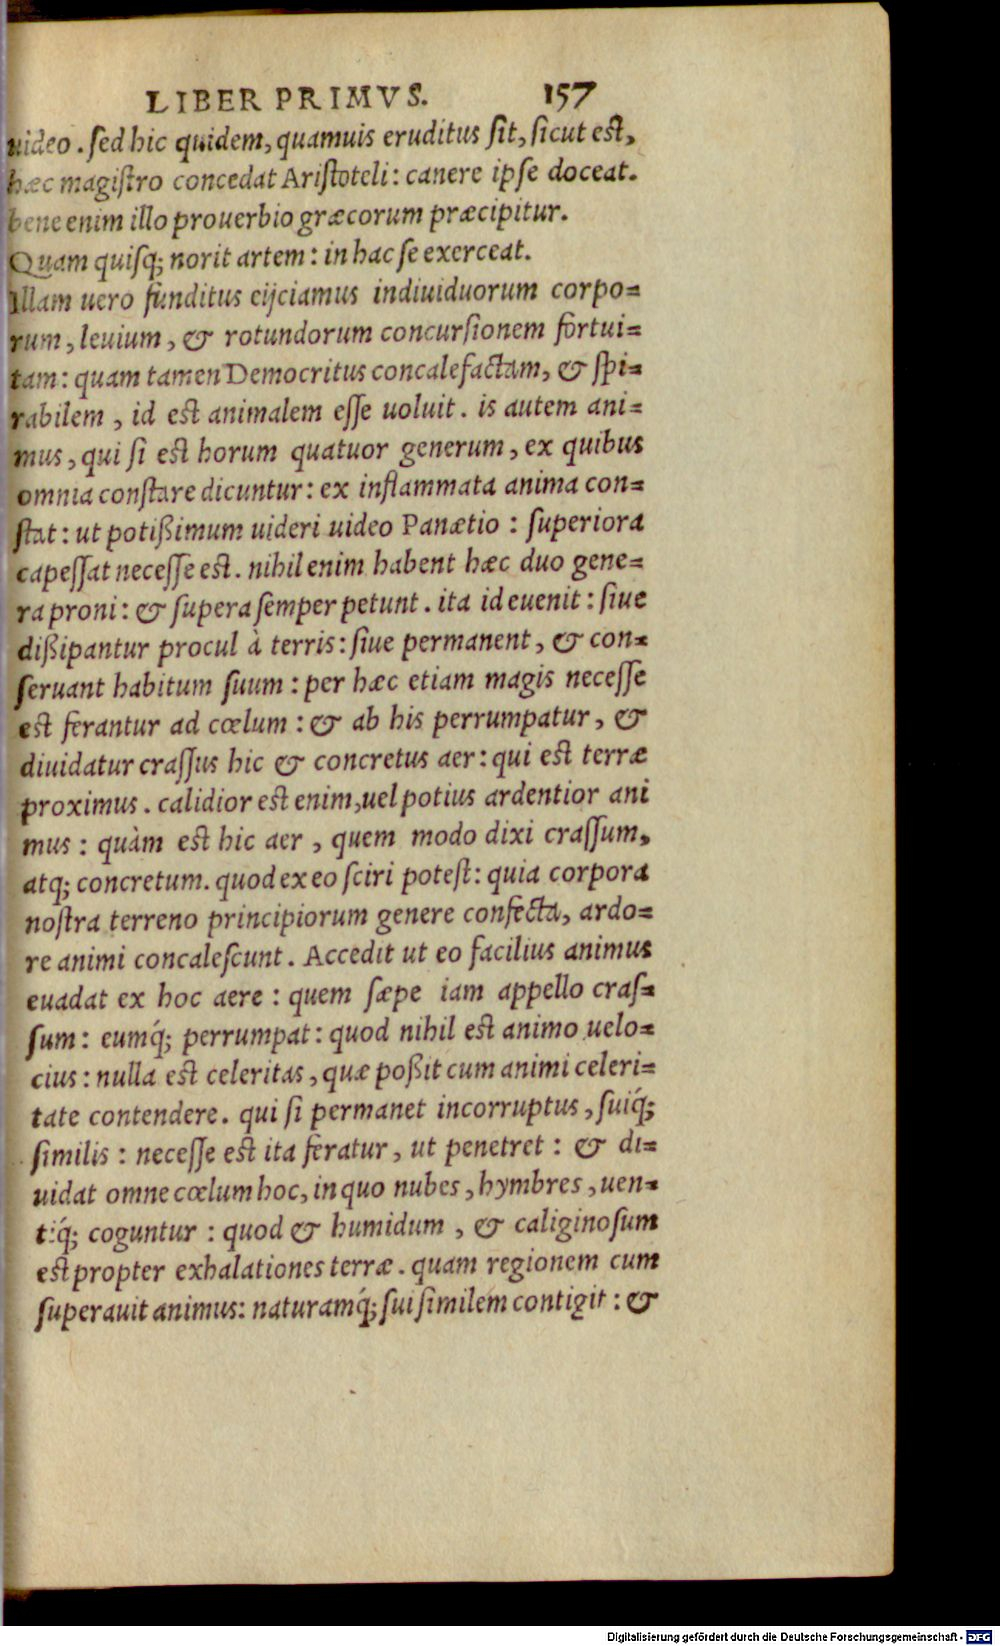 LIBER PRIMVS. 157
uideo . sed hic quidem, quamuis eruditus sit, sicut est,
hæc magistro concedat Aristoteli : canere ipse doceat.
bene enim illo prouerbio græcorum præcipitur.
Quam quisq; norit artem : in hac se exerceat.
Illam uero funditus eijciamus indiuiduorum corpo=
rum, leuium, & rotundorum concursionem fortui=
tam : quam tamen Democritus concalefactam, & spi=
rabilem , id est animalem esse uoluit . is autem ani=
mus, qui si est horum quatuor generum, ex quibus
omnia constare dicuntur : ex inflammata anima con=
stat : ut potißimum uideri uideo Panætio : superiora
capessat necesse est . nihil enim habent hæc duo gene=
ra proni : & supera semper petunt . ita id euenit : siue
dißipantur procul à terris : siue permanent, & con=
seruant habitum suum : per hæc etiam magis necesse
est ferantur ad cœlum : & ab his perrumpatur, &
diuidatur crassus hic & concretus aer : qui est terræ
proximus . calidior est enim, uel potius ardentior ani
mus : quàm est hic aer , quem modo dixi crassum,
atq; concretum. quod ex eo sciri potest : quia corpora
nostra terreno principiorum genere confecta, ardo=
re animi concalescunt . Accedit ut eo facilius animus
euadat ex hoc aere : quem sæpe iam appello cras=
sum : eumq́; perrumpat : quod nihil est animo uelo=
cius : nulla est celeritas, quæ poßit cum animi celeri=
tate contendere. qui si permanet incorruptus, suiq́;
similis : necesse est ita feratur, ut penetret : & di=
uidat omne cœlum hoc, in quo nubes, hymbres, uen=
tiq́; coguntur : quod & humidum , & caliginosum
est propter exhalationes terræ . quam regionem cum
superauit animus : naturamq́; sui similem contigit : &
Digitalisierung gefördert durch die Deutsche Forschungsgemeinschaft - DFG